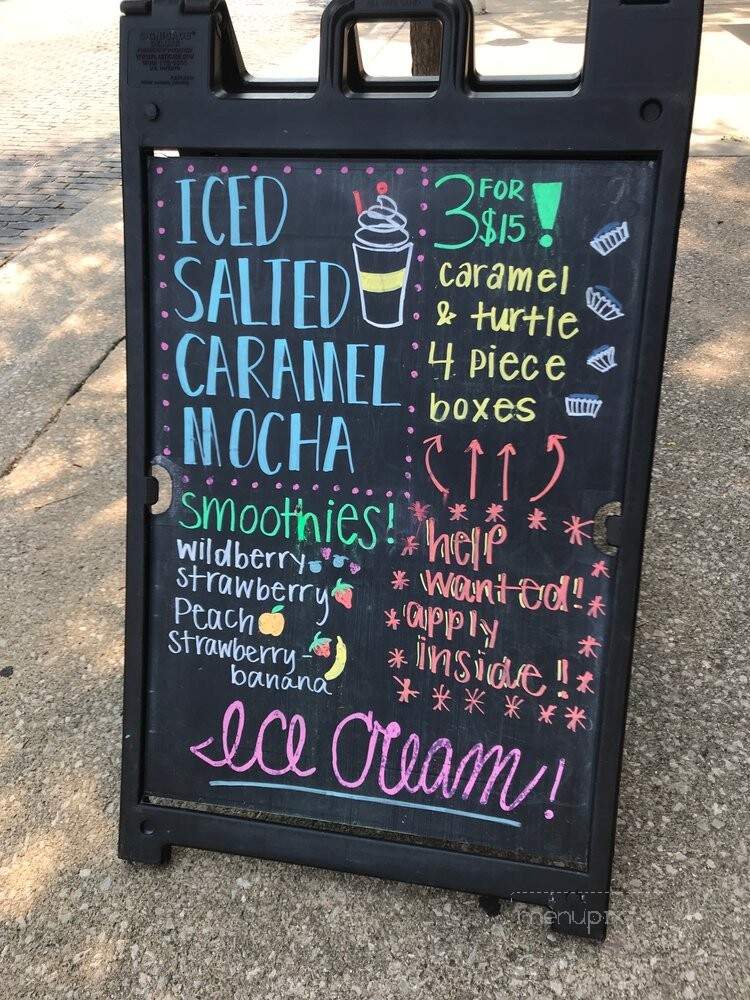 ICED
SALTED
CARAMEL
MOCHA
3 FOR
$15!
caramel
& turtle
4 piece
boxes
smoothies!
wildberry-
strawberry
Peach
strawberry-
banana
help
wanted!
apply
inside!
Ice Cream!
menupix